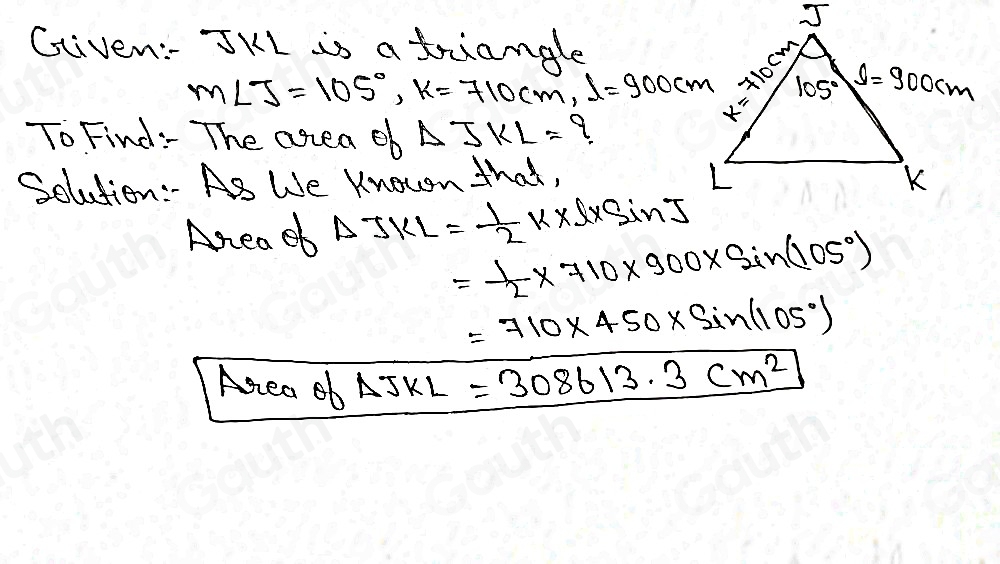 Given:- JKL is a triangle
m∠J = 105°, K = 710cm, l = 900cm
To Find:- The area of Δ JKL = ?
Solution:- As We Known that,
Area of Δ JKL = 1/2 K×l×Sin J
= 1/2 × 710×900×Sin(105°)
= 710×450×Sin(105°)
Area of ΔJKL = 308613.3 Cm²
J
K = 710cm
105°
l = 900cm
L
K
Gauth